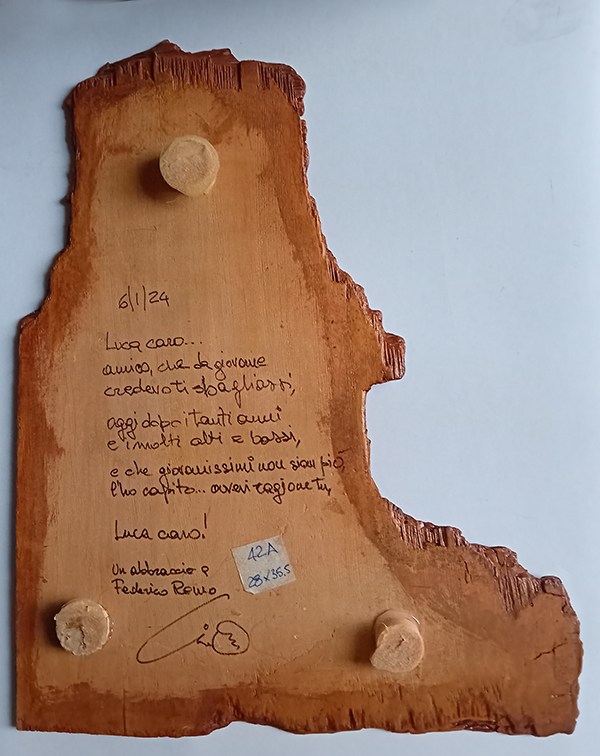 6/1/24
Luca caro...
amico, che da giovane
credevo ti sbagliassi,
oggi dopo i tanti anni
e i molti alti e bassi,
e che giovanissimi non siam più,
l'ho capito... avevi ragione tu,
Luca caro!
Un abbraccio
Federico Remo
42A
28x36.5